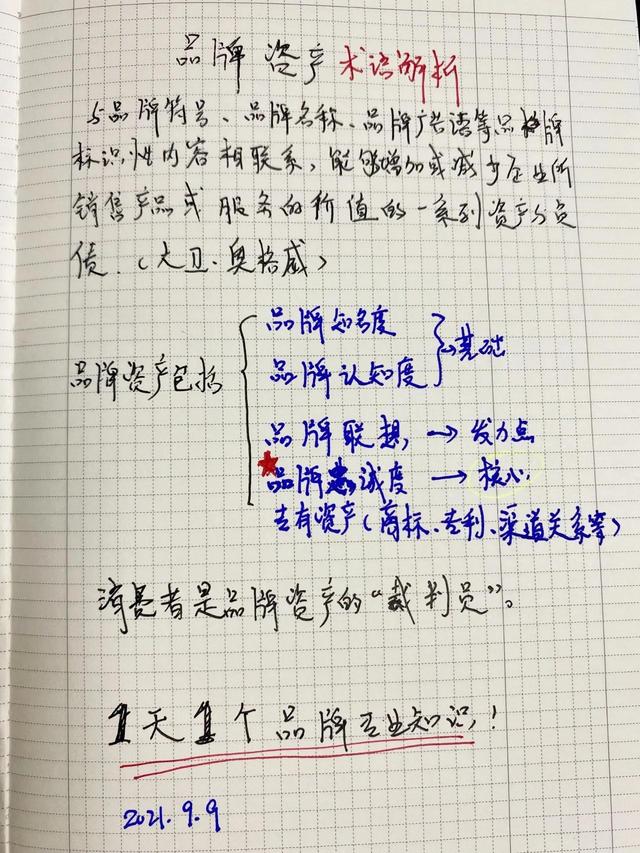 品牌资产术语解析
与品牌符号、品牌名称、品牌广告语等品牌
标识性内容相联系，能够增加或减少企业所
销售产品或服务的价值的一系列资产与负
债.（大卫·奥格威）
品牌资产包括
品牌知名度
品牌认知度
→基础
品牌联想 → 发力点
★品牌忠诚度 → 核心
专有资产（商标、专利、渠道关系等）
消费者是品牌资产的“裁判员”。
1天1个品牌专业知识！
2021.9.9